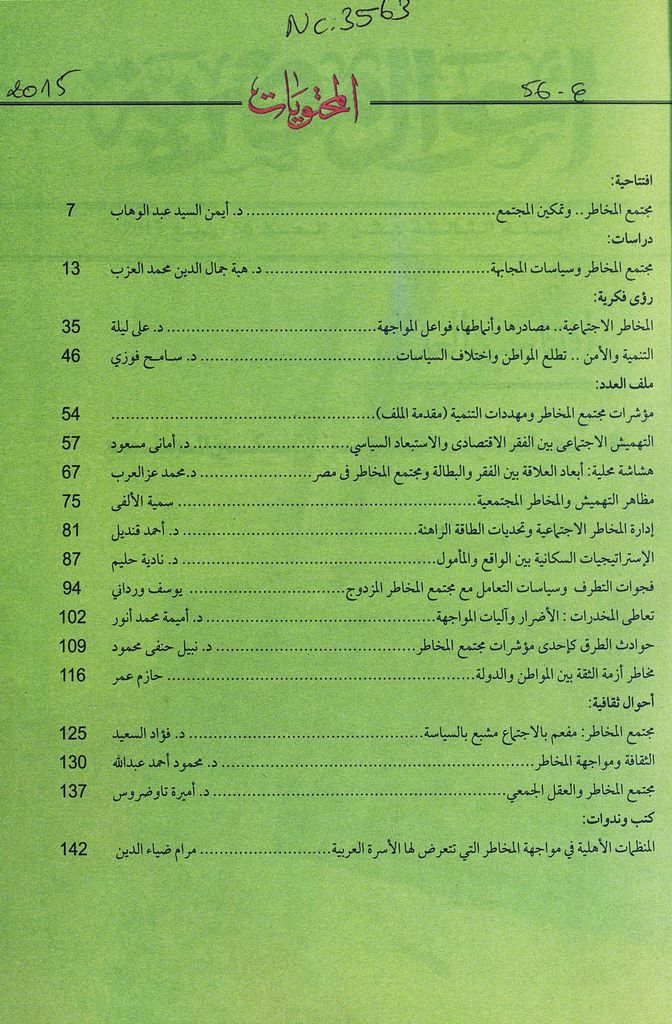 Nc.3563
2015
56-ع
المحتويات
افتتاحية:
مجتمع المخاطر.. وتمكين المجتمع.................... د. أيمن السيد عبد الوهاب 7
دراسات:
مجتمع المخاطر وسياسات المجابهة.................... د. هبة جمال الدين محمد العزب 13
رؤى فكرية:
المخاطر الاجتماعية.. مصادرها وأنماطها، فواعل المواجهة.................... د. على ليلة 35
التنمية والأمن .. تطلع المواطن واختلاف السياسات.................... د. سـامـح فوزي 46
ملف العدد:
مؤشرات مجتمع المخاطر ومهددات التنمية (مقدمة الملف).................... 54
التهميش الاجتماعى بين الفقر الاقتصادى والاستبعاد السياسي.................... د. أمانى مسعود 57
هشاشة محلية: أبعاد العلاقة بين الفقر والبطالة ومجتمع المخاطر فى مصر.................... د.محمد عزالعرب 67
مظاهر التهميش والمخاطر المجتمعية.................... سمية الألفى 75
إدارة المخاطر الاجتماعية وتحديات الطاقة الراهنة.................... د. أحمد قنديل 81
الإستراتيجيات السكانية بين الواقع والمأمول.................... د. نادية حليم 87
فجوات التطرف وسياسات التعامل مع مجتمع المخاطر المزدوج.................... يوسف ورداني 94
تعاطى المخدرات : الأضرار وآليات المواجهة.................... د. أميمة محمد أنور 102
حوادث الطرق كإحدى مؤشرات مجتمع المخاطر.................... د. نبيل حنفى محمود 109
مخاطر أزمة الثقة بين المواطن والدولة.................... حازم عمر 116
أحوال ثقافية:
مجتمع المخاطر: مفعم بالاجتماع مشبع بالسياسة.................... د. فؤاد السعيد 125
الثقافة ومواجهة المخاطر.................... د. محمود أحمد عبدالله 130
مجتمع المخاطر والعقل الجمعي.................... د. أميرة تاوضروس 137
كتب وندوات:
المنظمات الأهلية في مواجهة المخاطر التي تتعرض لها الأسرة العربية.................... مرام ضياء الدين 142